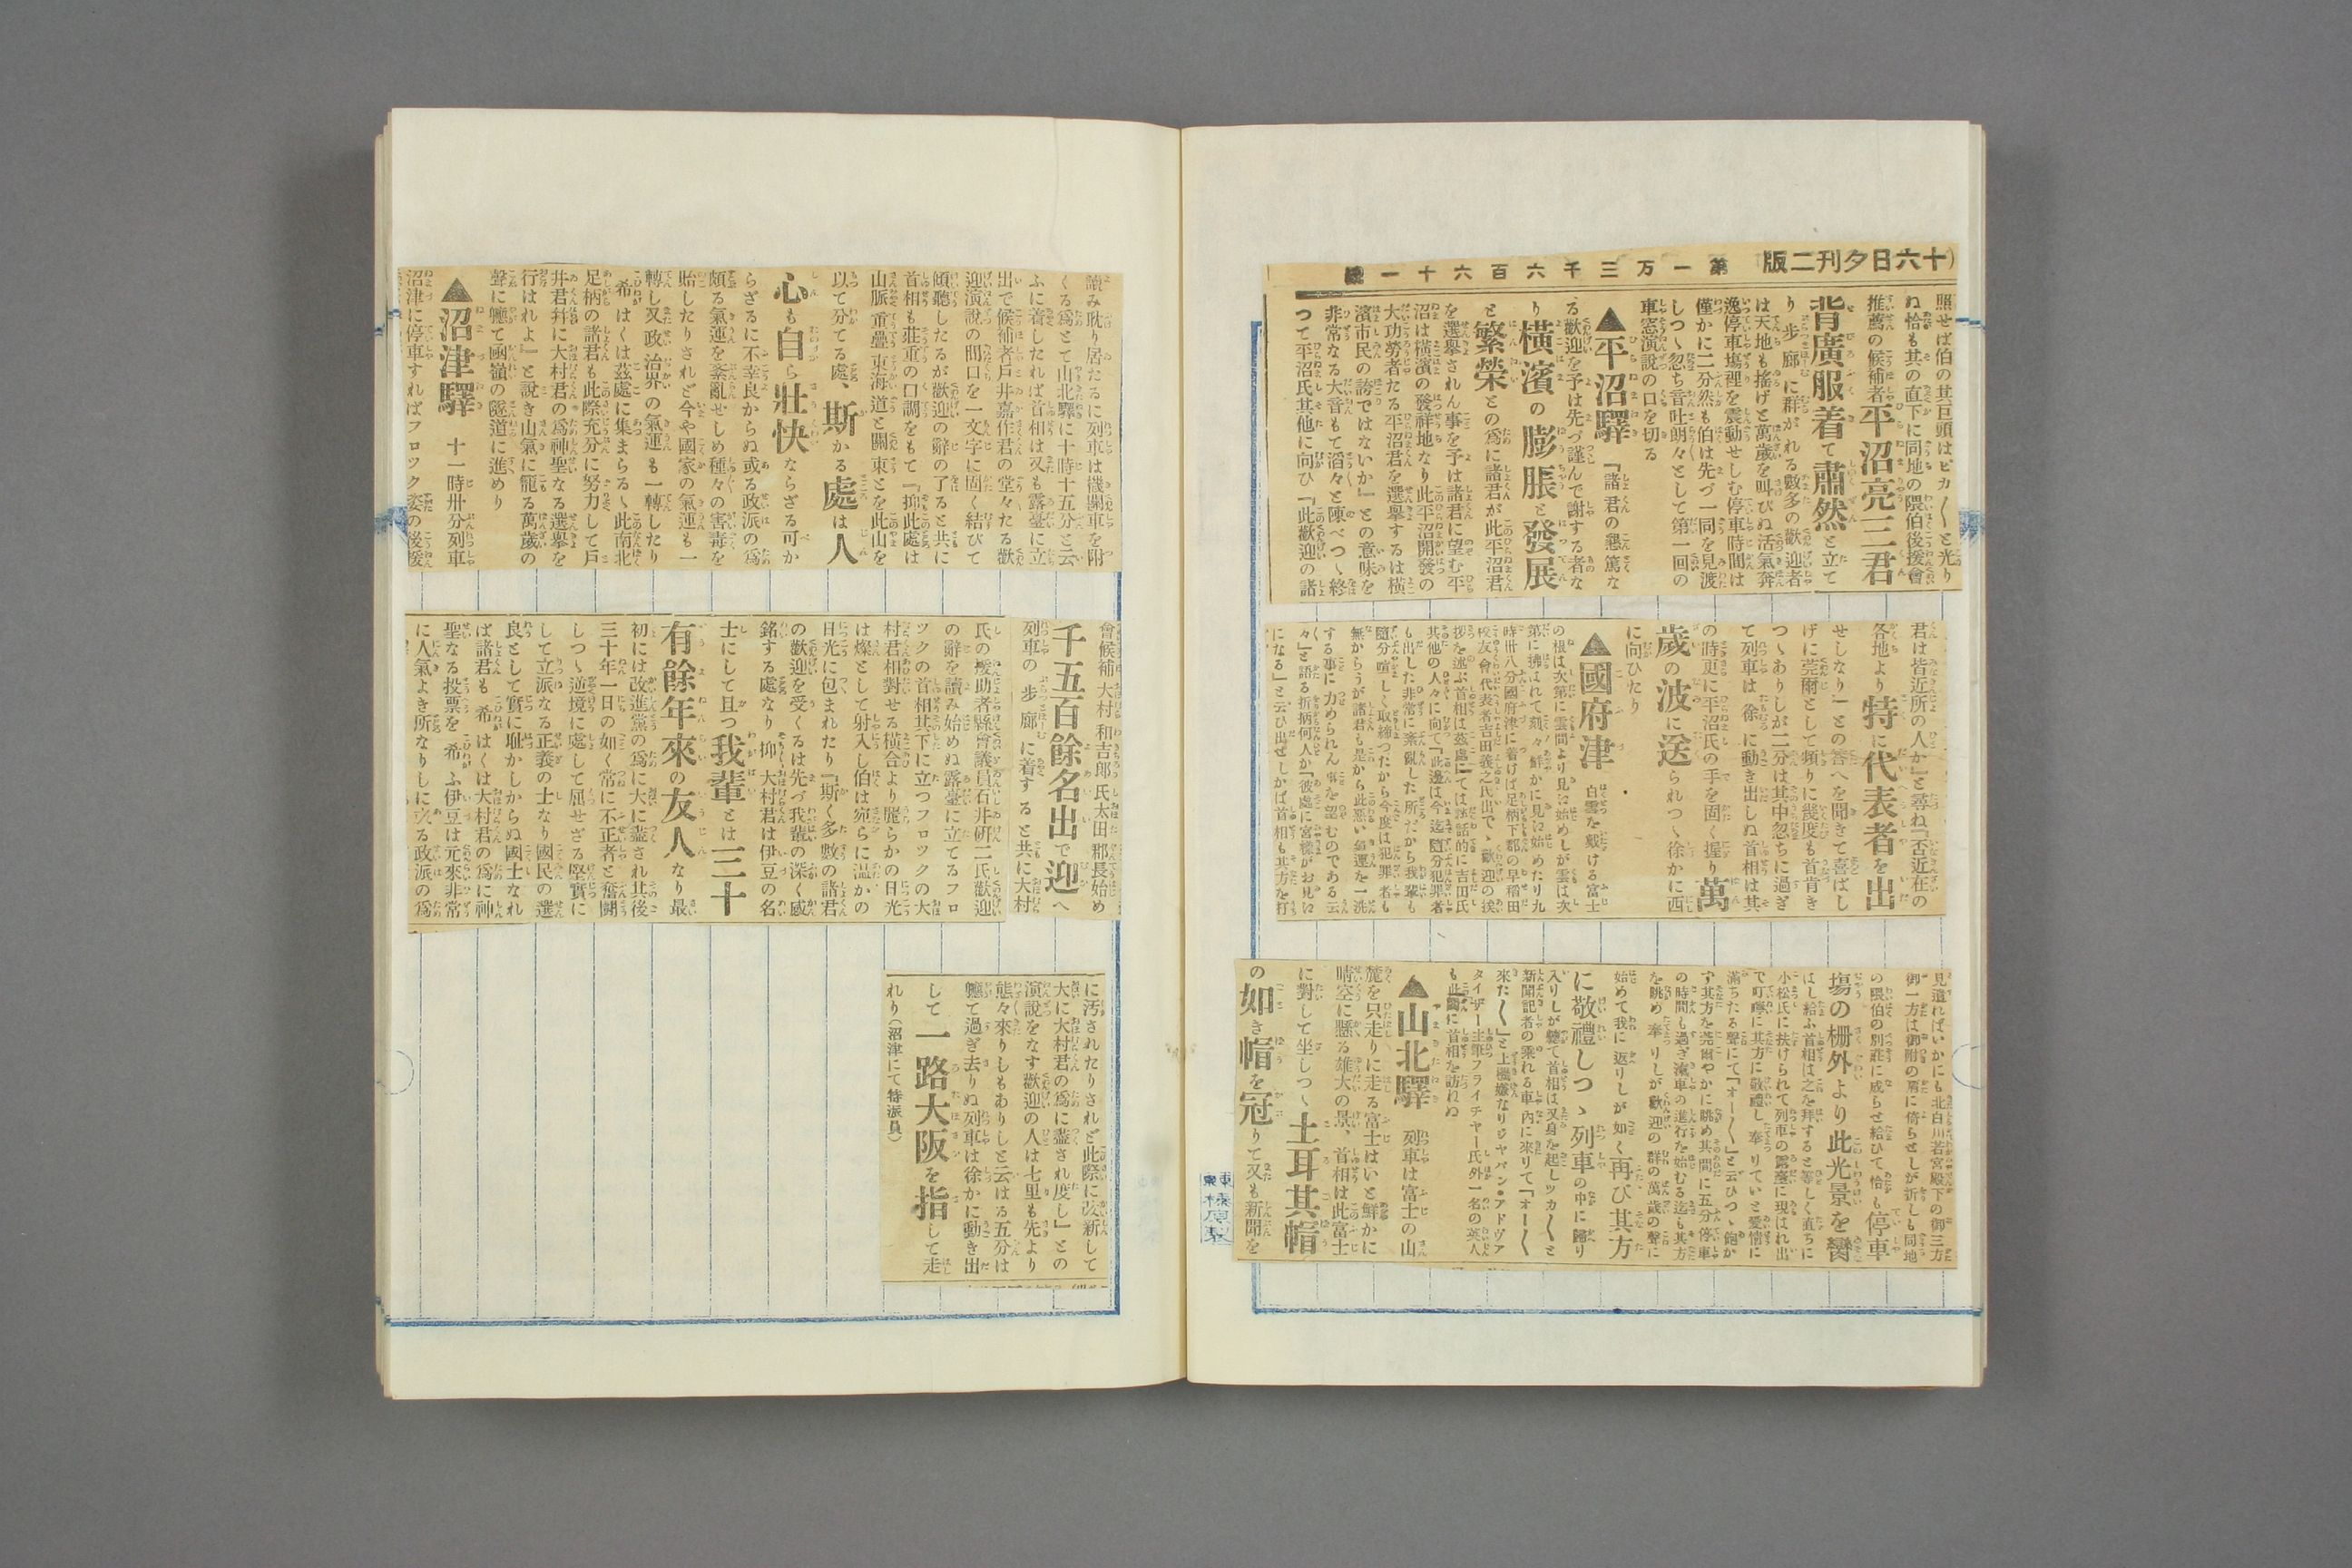 十六日夕刊二版)
第一万三千六百六十一號
照せば伯の其巨頭はピカ〳〵と光り
ね恰も其の直下に同地の隈伯後援會
推薦の候補者平沼亮三君
背廣服着て肅然と立て
り歩廊に群がれる數多の歡迎者
は天地も搖げと萬歲を叫びぬ活氣奔
逸停車塲裡を震動せしむ停車時間は
僅かに二分然も伯は先づ一同を見渡
しつゝ忽ち音吐朗々として第一回の
車窓演說の口を切る
▲平沼驛 『諸君の懇篤な
る歡迎を予は先づ謹んで謝する者な
り橫濱の膨脹と發展
と繁榮との爲に諸君が此平沼君
を選擧されん事を予は諸君に望む平
沼は橫濱の發祥地なり此平沼開發の
大功勞者たる平沼君を選擧するは橫
濱市民の誇ではないか』との意味を
非常なる大音もて滔々と陳べつゝ終
つて平沼氏其他に向ひ『此歡迎の諸
君は皆近所の人か』と尋ね『否近在の
各地より特に代表者を出
せしなり』との答へを聞きて喜ばし
げに莞爾として頻りに幾度も首肯き
つゝありしが二分は其中忽ちに過ぎ
て列車は徐に動き出しぬ首相は其
の時更に平沼氏の手を固く握り萬
歲の波に送られつゝ徐かに西
に向ひたり
▲國府津 白雲を戴ける富士
の根は次第に雲間より見は始めしが雲は次
第に拂はれて刻々鮮かに見は始めたり九
時卅八分國府津に着けば足柄下郡の早稻田
校友會代表者吉田義之氏出で、歡迎の挨
拶を述ぶ首相は茲處にては談話的に吉田氏
其他の人々に向て『此邊は今迄隨分犯罪者
も出した非常に紊亂した所だから我輩も
隨分喧しく取締つたから今度は犯罪者も
無からうが諸君も是から此惡い氣運を一洗
する事に力められん事を望むのである云
々』と語る折柄何人か『彼處に宮樣がお見は
になる』と云ひ出せしかば首相も其方を打
見遣ればいかにも北白川若宮殿下の御三方
御一方は御附の肩に倚らせしが折しも同地
の隈伯の別莊に成らせ給ひて恰も停車
塲の柵外より此光景を嚮
はし給ふ首相は之を拜すると等しく直ちに
小松氏に扶けられて列車の露臺に現はれ出
で叮嚀に其方に敬禮し奉りていと愛情に
滿ちたる聲にて『オー〳〵』と云ひつゝ飽か
ず其方を莞爾やかに眺め其間に五分停車
の時間も過ぎ滊車の進行を始むる迄も其方
を眺め奉りしが歡迎の群の萬歲の聲に
始めて我に返りしが如く再び其方
に敬禮しつゝ列車の中に歸り
入りしが軈て首相は又身を起しツカ〳〵と
新聞記者の乘れる車內に來りて『オー〳〵
來た〳〵』と上機嫌なりジヤパン・アドヴア
タイザー主筆フライチヤー氏外一名の英人
も此間に首相を訪れぬ
▲山北驛 列車は富士の山
麓を只走りに走る富士はいと鮮かに
晴空に懸る雄大の景、首相は此富士
に對して坐しつゝ土耳其帽
の如き帽を冠りて又も新聞を
東京 榛原製
讀み耽り居たるに列車は機關車を附
くる爲とて山北驛に十時十五分と云
ふに着したれば首相は又も露臺に立
出で候補者戶井嘉作君の堂々たる歡
迎演說の間口を一文字に固く結びて
傾聽したるが歡迎の辭の了ると共に
首相も莊重の口調をもて『抑此處は
山脈重疊東海道と關東とを此山を
以て分てる處、斯かる處は人
心も自ら壯快ならざる可か
らざるに不幸良からぬ或る政派の爲
頗る氣運を紊亂せしめ種々の害毒を
貽したりされど今や國家の氣運も一
轉し又政治界の氣運も一轉したり
希はくは茲處に集まらるゝ此南北
足柄の諸君も此際充分に努力して戶
井君幷に大村君の爲神聖なる選擧を
行はれよ』と說き山氣に籠る萬歲の
聲に軈て凾嶺の隧道に進めり
▲沼津驛 十一時卅分列車
沼津に停車すればフロツク姿の後援
會候補大村和吉郎氏太田郡長始め
千五百餘名出で迎へ
列車の歩廊に着すると共に大村
氏の援助者縣會議員石井硏二氏歡迎
の辭を讀み始めぬ露臺に立てるフロ
ツクの首相其下に立つフロツクの大
村君相對せる橫合より麗らかの日光
は燦として射入し伯は宛らに溫かの
日光に包まれたり『斯く多數の諸君
の歡迎を受くるは先づ我輩の深く感
銘する處なり抑大村君は伊豆の名
士にして且つ我輩とは三十
有餘年來の友人なり最
初には改進黨の爲に大に盡され其後
三十年一日の如く常に不正者と奮鬪
しつゝ逆境に處して屈せざる堅實に
して立派なる正義の士なり國民の選
良として實に耻かしからぬ國士なれ
ば諸君も希はくは大村君の爲に神
聖なる投票を希ふ伊豆は元來非常
に人氣よき所なりしに或る政派の爲
に汚されたりされど此際に改新して
大に大村君の爲に盡され度し』との
演說をなす歡迎の人は七里も先より
態々來りしもありしと云はる五分は
軈て過ぎ去りぬ列車は徐かに動き出
して一路大阪を指して走
れり(沼津にて特派員)